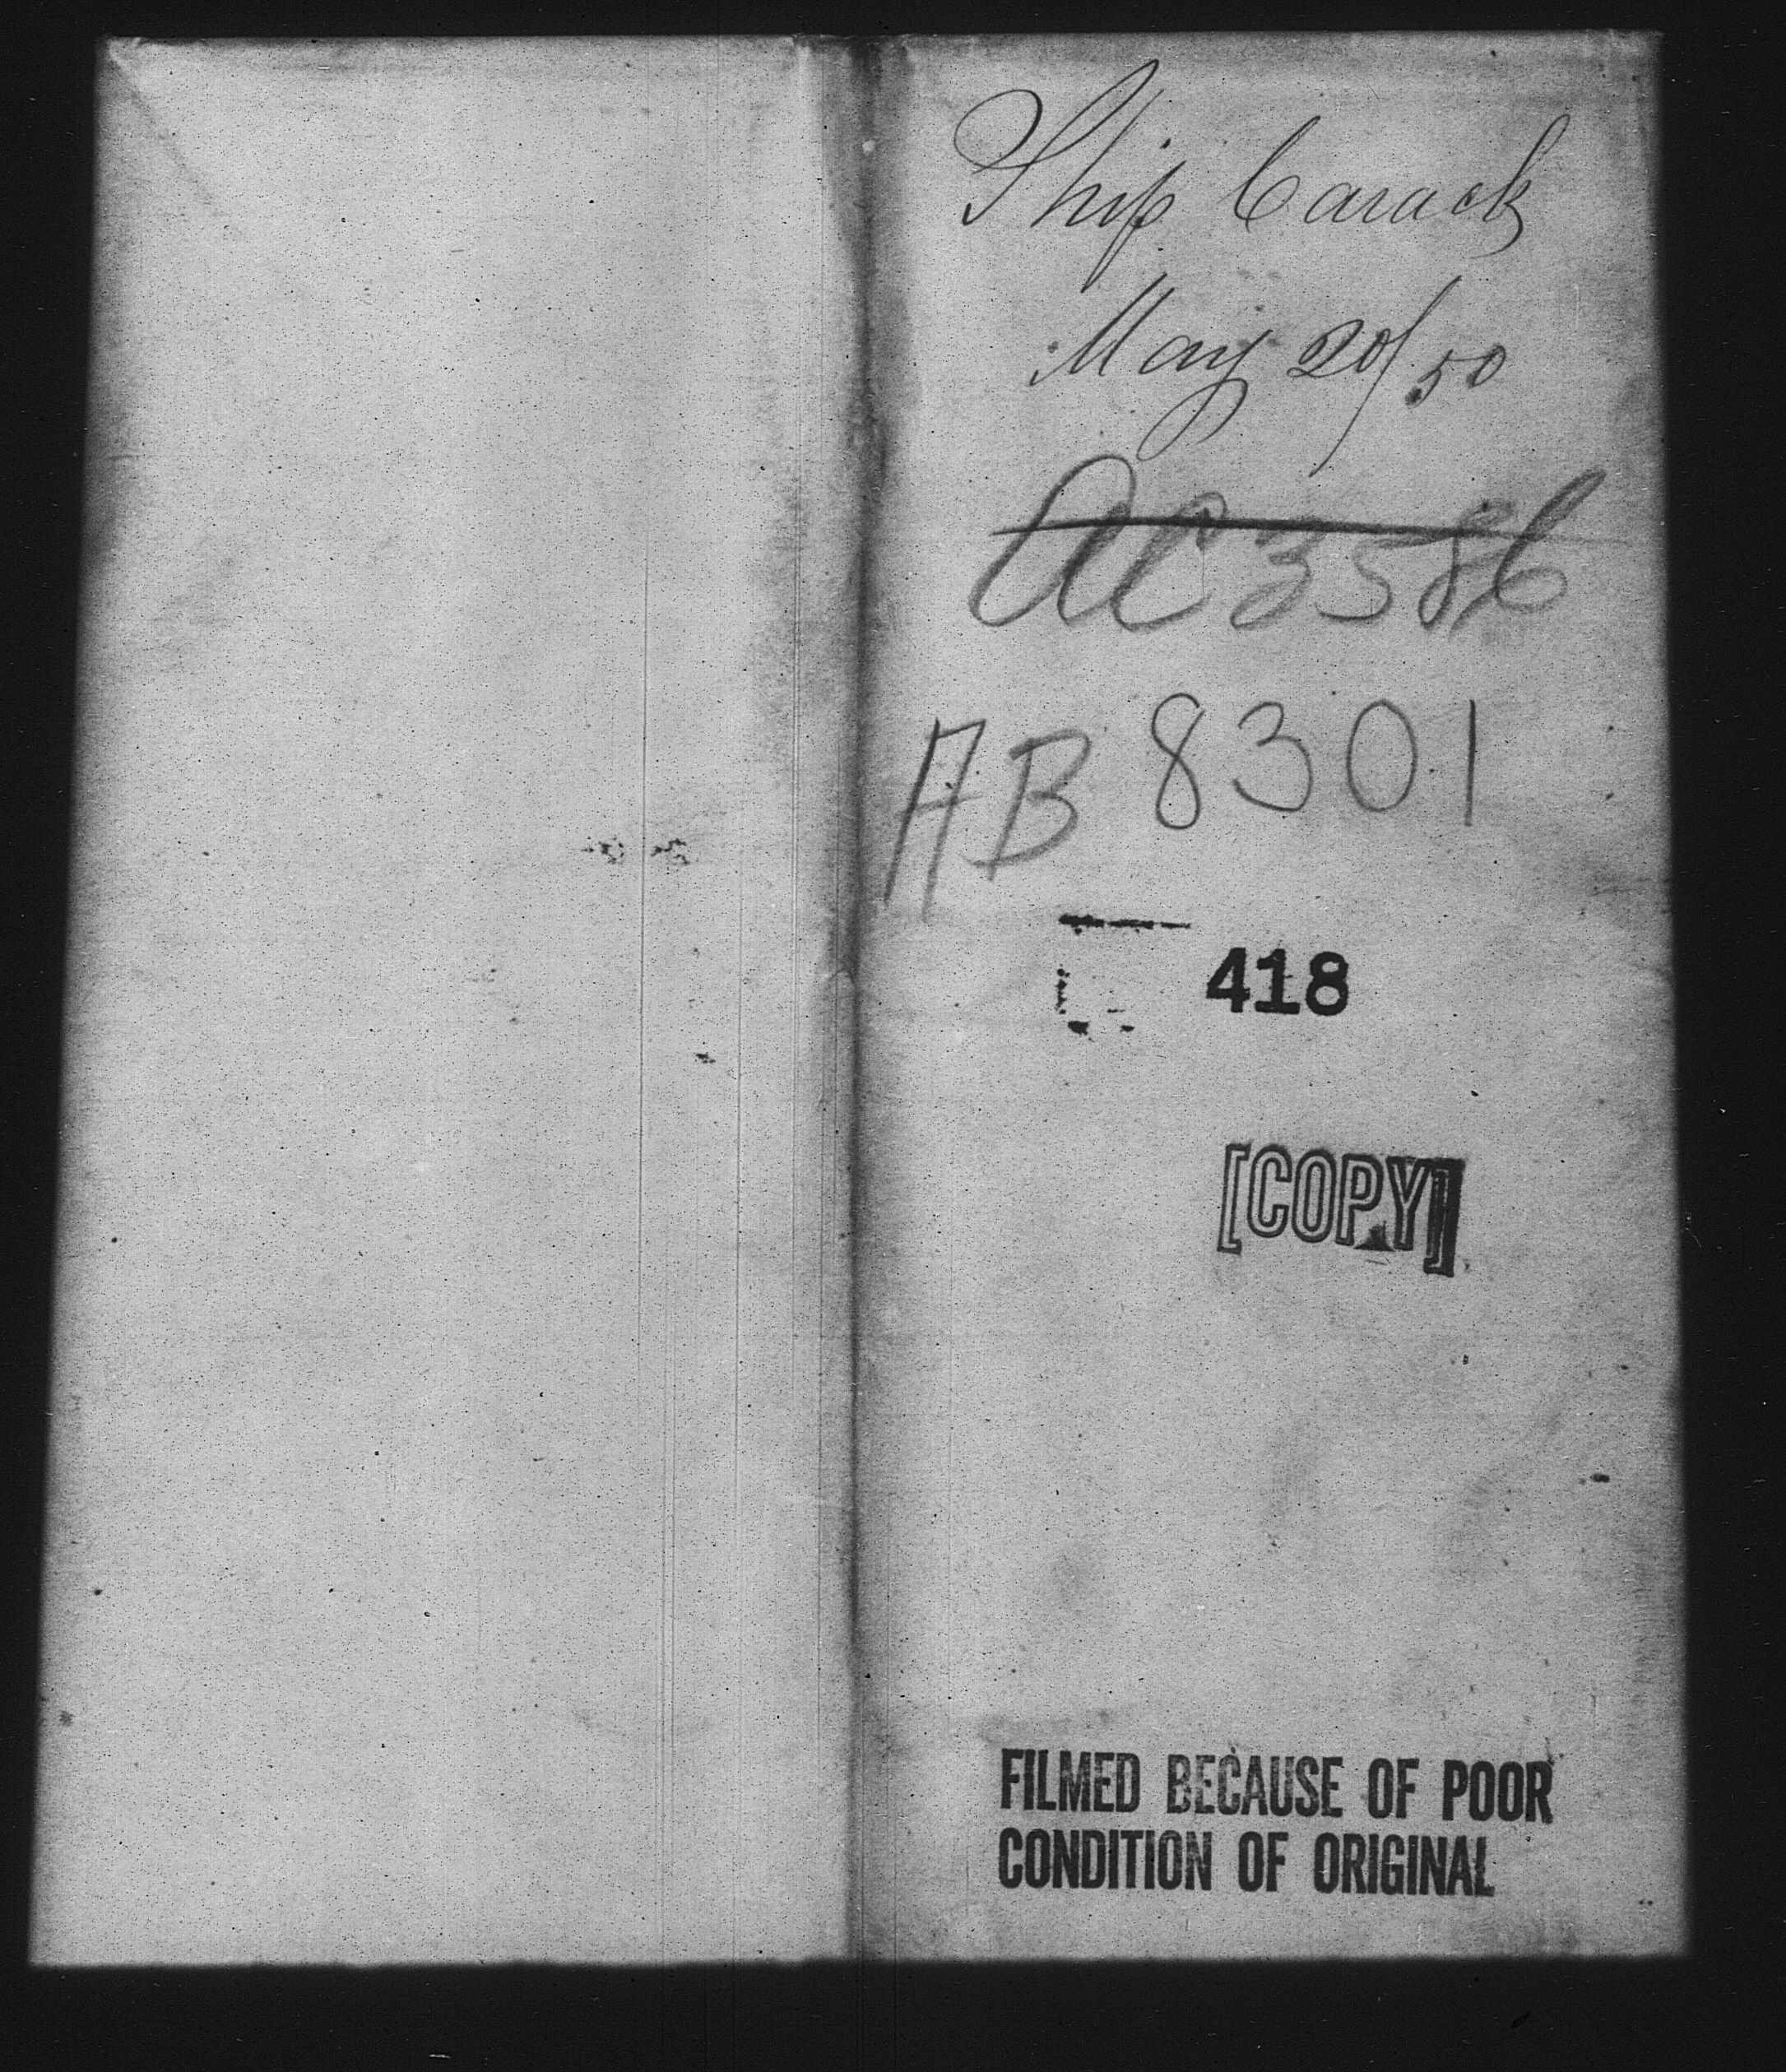 Ship Carack
May 20/50
AC 3586
AB 8301
418
[COPY]
FILMED BECAUSE OF POOR
CONDITION OF ORIGINAL